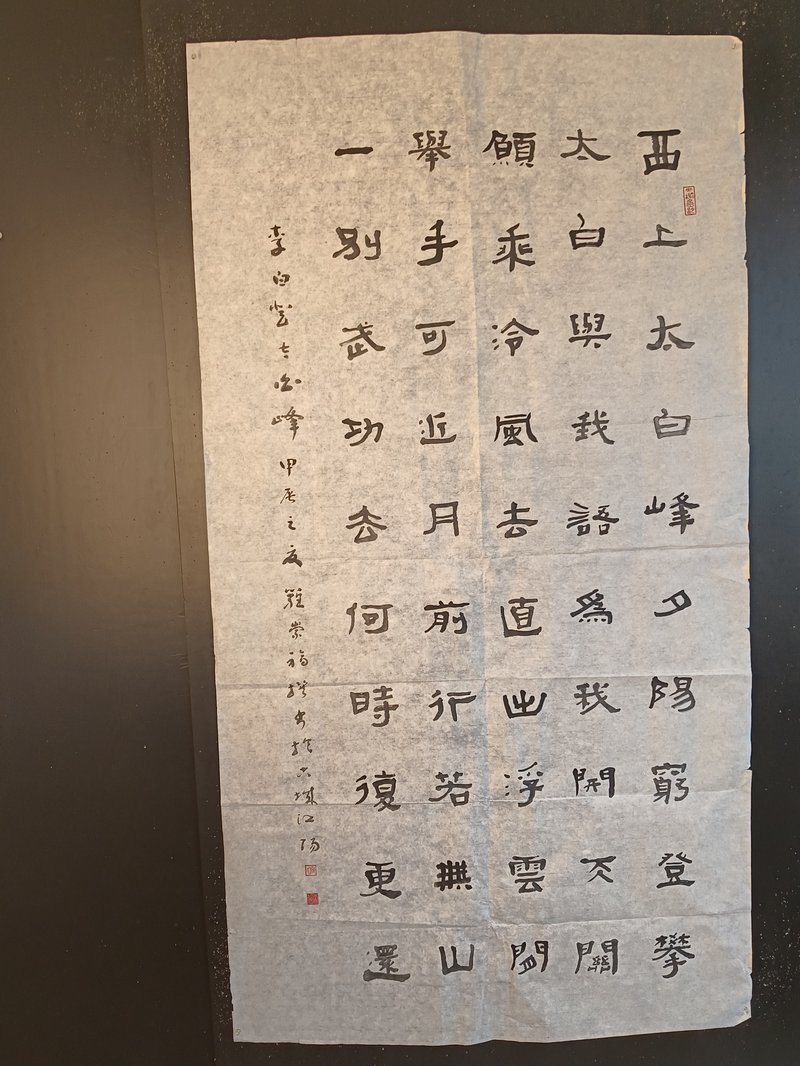 西上太白峰夕陽窮登攀
太白與我語爲我開天關
願乘泠風去直出浮雲間
舉手可近月前行若無山
一別武功去何時復更還
李白登太白峰 甲辰之夏 崇福 書於 江陽